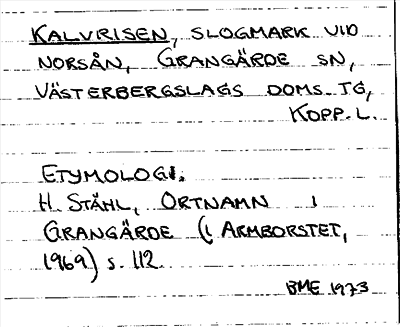 KALVRISEN, SLOGMARK VID
NORSÅN, GRANGÄRDE SN,
VÄSTERBERGSLAGS DOMS. TG,
KOPP. L.
ETYMOLOGI:
H. STÅHL, ORTNAMN I
GRANGÄRDE (I ARMBORSTET,
1969) s. 112
BME 1973